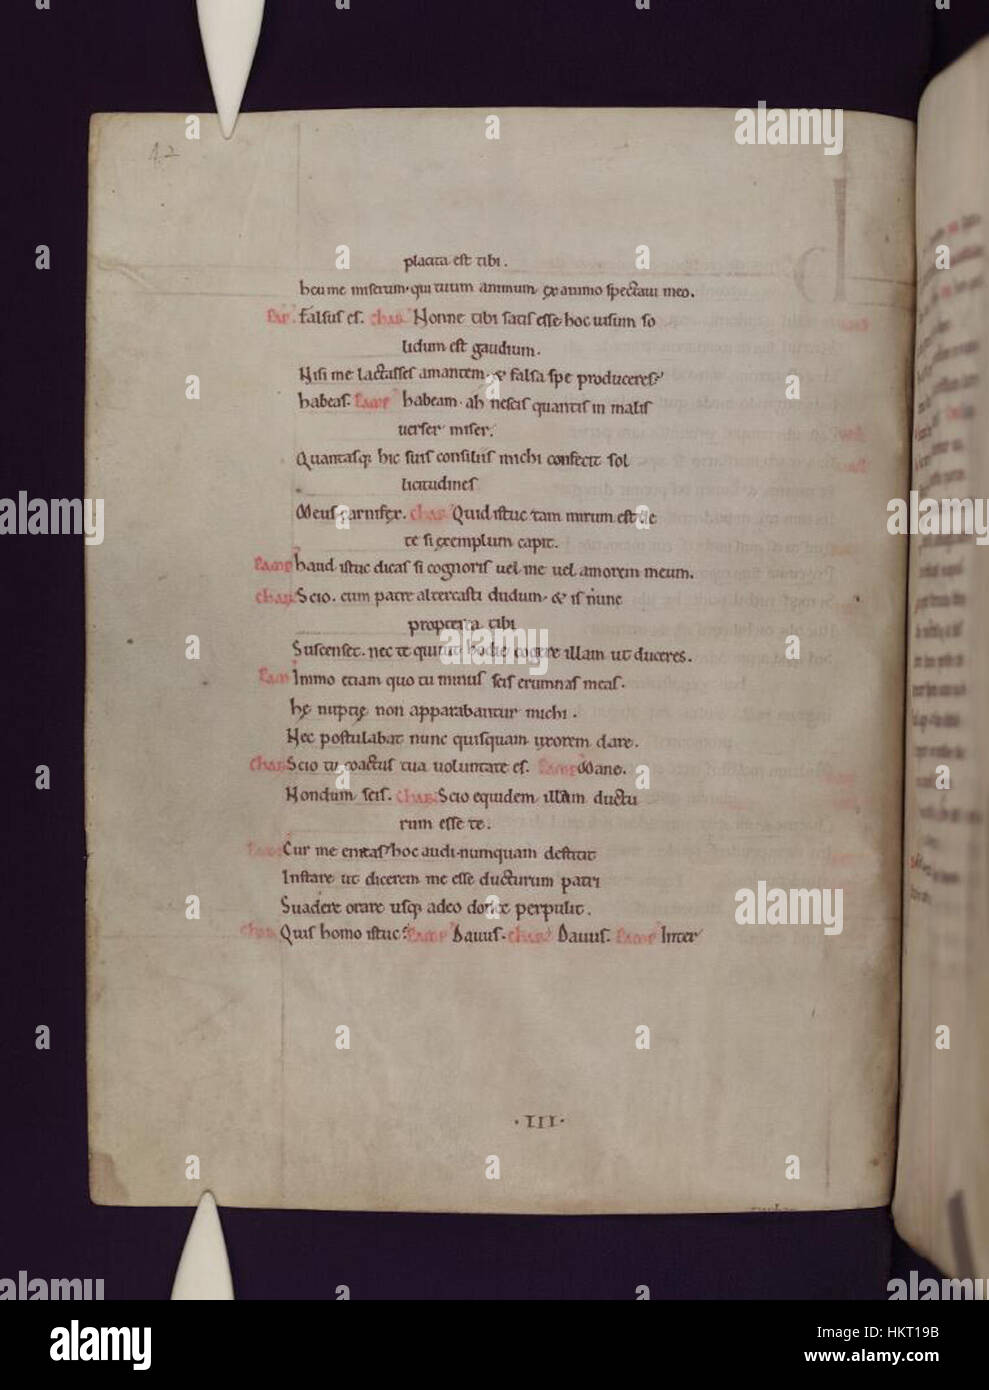 42
placita est tibi.
heu me miserum. qui tuum animum ex animo spectaui meo.
Pam. falsus es. Char. Nonne tibi satis esse hoc uisum so
lidum est gaudium.
Nisi me lactasses amantem. & falsa spe produceres?
habeas. Pamp habeam. ah nescis quantis in malis
uerser miser.
Quantasq; hic suis consiliis michi confecit sol
licitudines
Meus carnifex. Char. Quid istuc tam mirum est de
te si exemplum capit.
Pamp haud istuc dicas si cognoris uel me uel amorem meum.
Char. Scio. cum patre altercasti dudum. & is nunc
propterea tibi
Suscenset. nec te quiuit hodie cogere illam ut duceres.
Pam Immo etiam quo tu minus scis erumnas meas.
hę nuptię non apparabantur michi.
Nec postulabat nunc quisquam uxorem dare.
Char Scio tu coactus tua uoluntate es. Pamp Mane.
Nondum scis. Char. Scio equidem illam ductu
rum esse te.
Pamp Cur me enicas? hoc audi. numquam destitit
Instare ut dicerem me esse ducturum patri
Suadere orare usq; adeo donec perpulit.
Char. Quis homo istuc? Pamp Dauus. Char. Dauus. Pamp Inter
.III.
alamy
Image ID: HKT19B
www.alamy.com